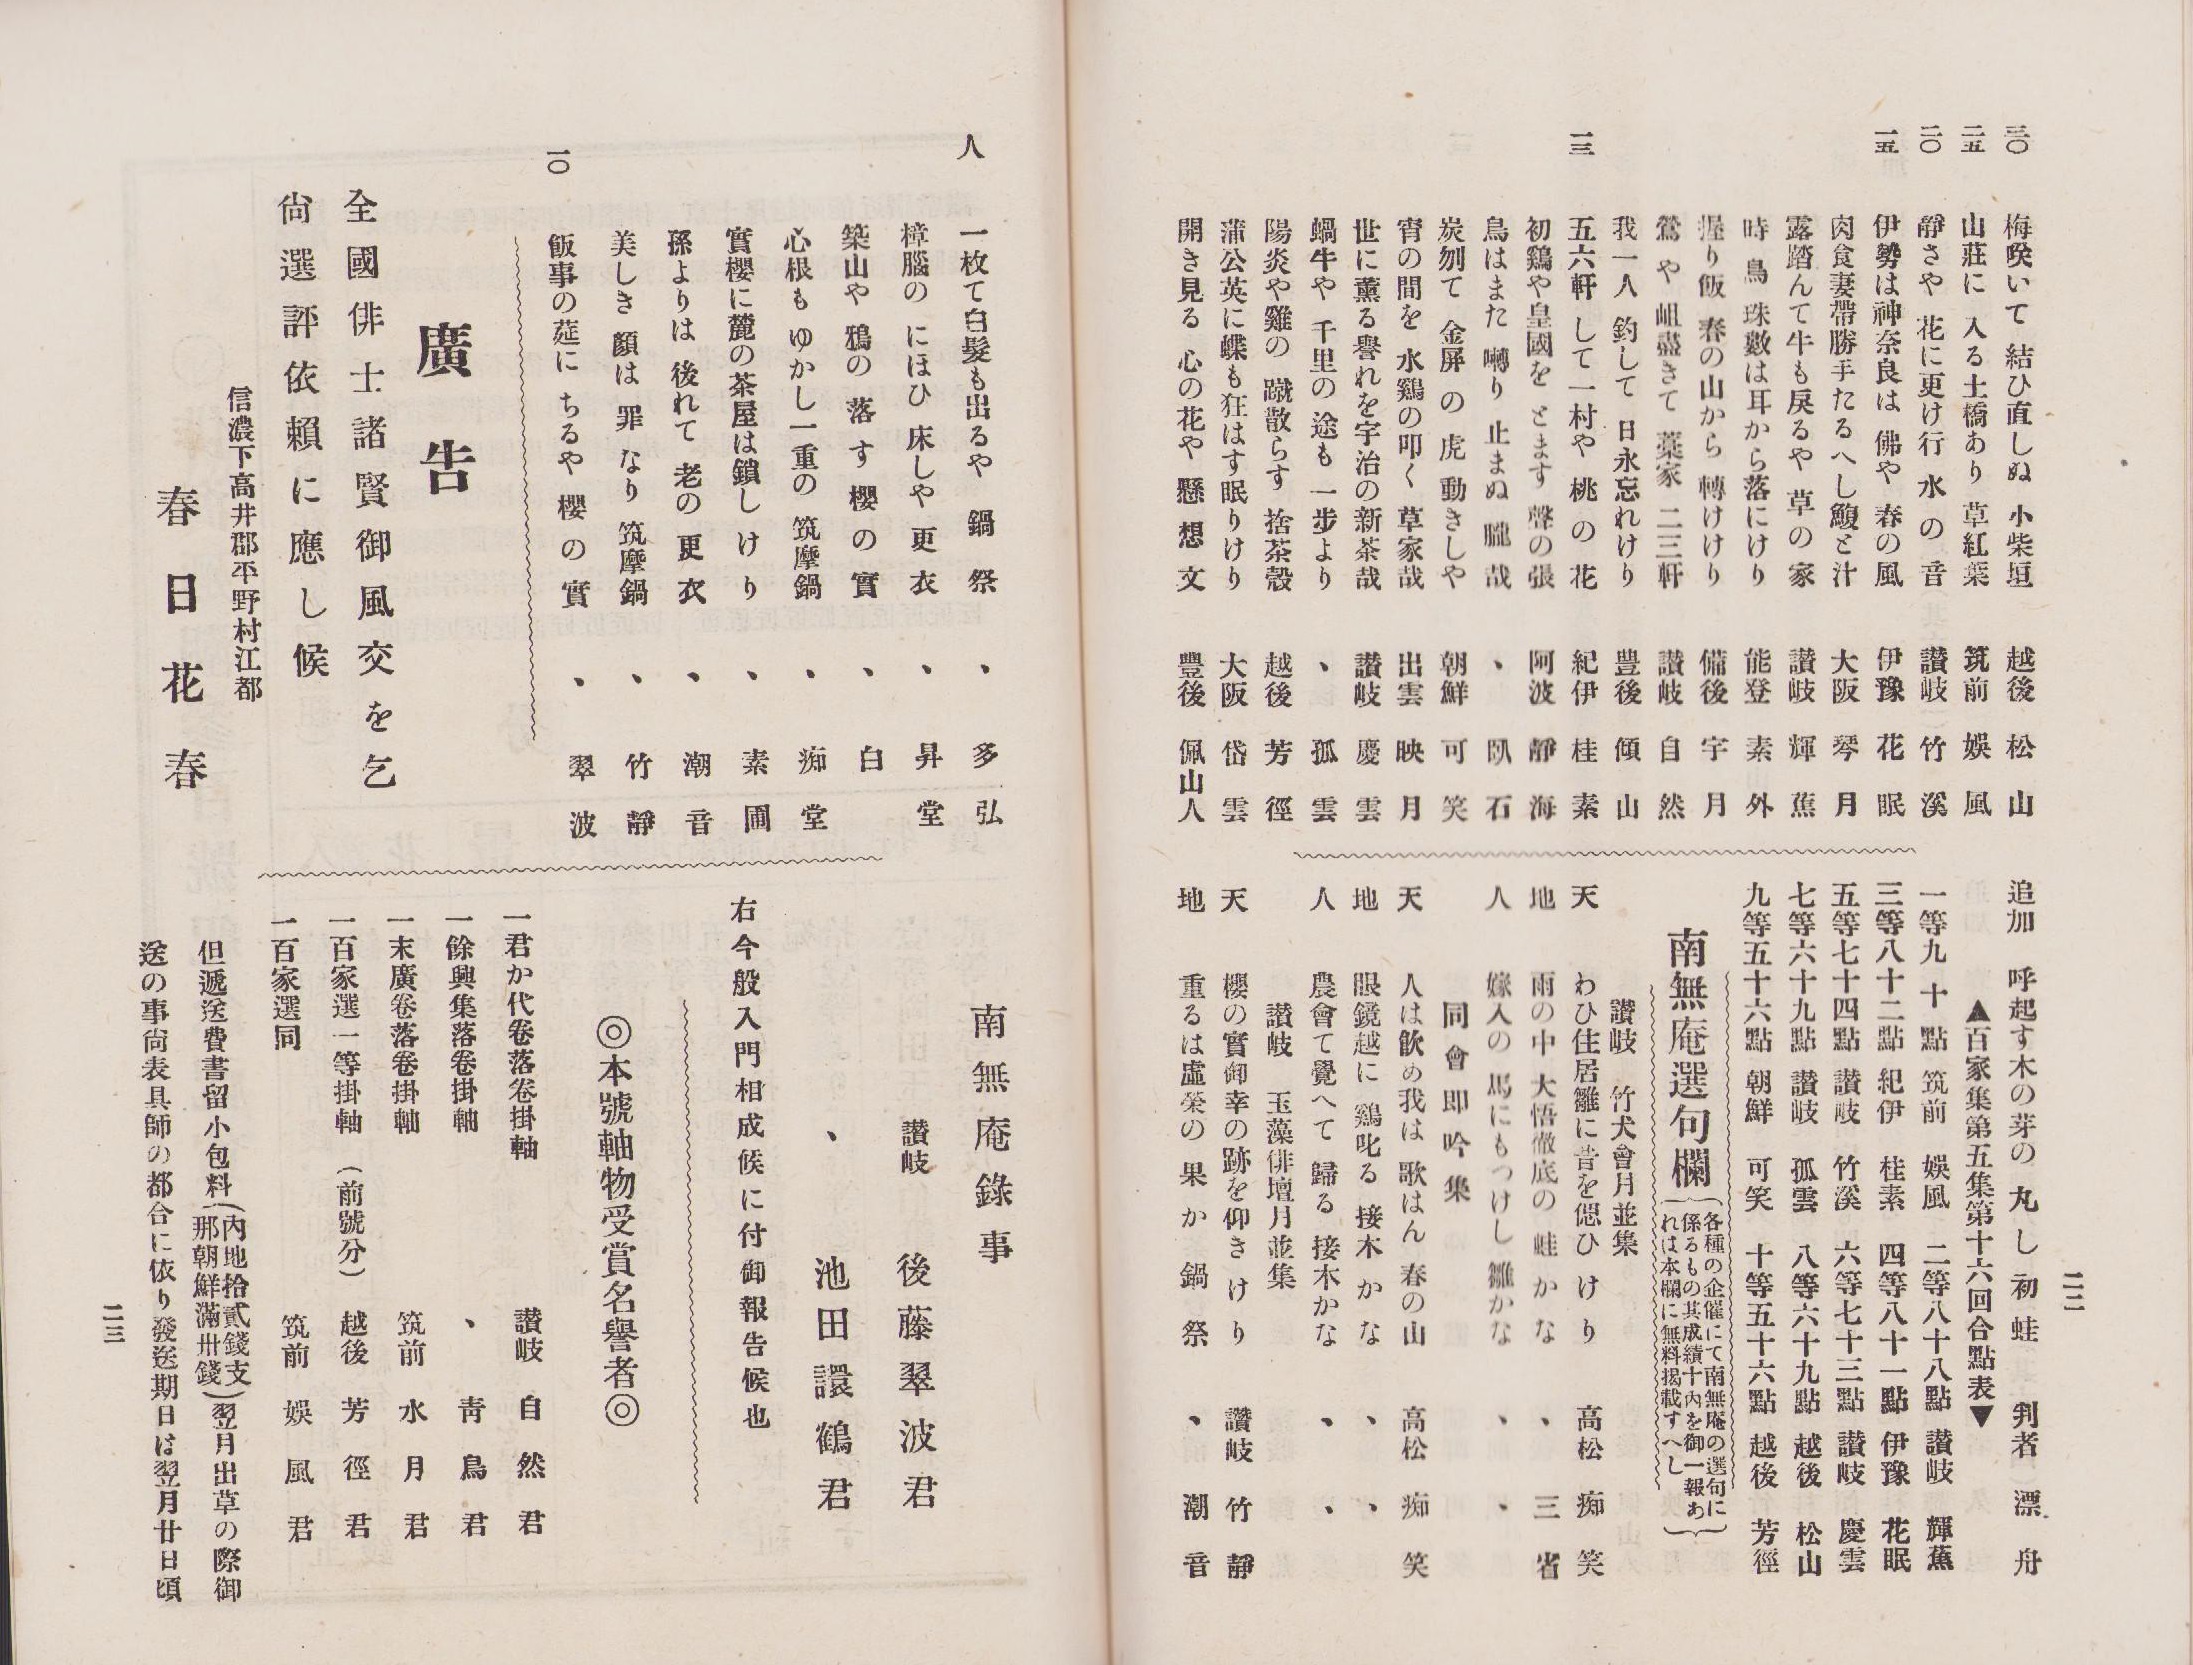 三〇 梅咲いて結ひ直しぬ小柴垣 越後 松山
二五 山莊に入る土橋あり草紅葉 筑前 娯風
二〇 靜さや花に更け行水の音 讃岐 竹溪
一五 伊勢は神奈良は佛や春の風 伊豫 花眠
肉食妻帶勝手たるへし鰒と汁 大阪 琴月
露踏んて牛も戻るや草の家 讃岐 輝蕉
時鳥珠數は耳から落にけり 能登 素外
握り飯春の山から轉けけり 備後 宇月
鶯や岨盡きて藁家二三軒 讃岐 自然
我一人釣して日永忘れけり 豊後 傾山
一三 五六軒して一村や桃の花 紀伊 桂素
初鷄や皇國をとます聲の張 阿波 靜海
鳥はまた囀り止まぬ朧哉 、 臥石
炭刎て金屏の虎動きしや 朝鮮 可笑
宵の間を水鷄の叩く草家哉 出雲 映月
世に薫る譽れを宇治の新茶哉 讃岐 慶雲
蝸牛や千里の途も一步より 、 孤雲
陽炎や雞の蹴散らす捨茶殼 越後 芳徑
蒲公英に蝶も狂はす眠りけり 大阪 岱雲
開き見る心の花や懸想文 豐後 佩山人
追加 呼起す木の芽の丸し初蛙 判者 漂舟
▲百家集第五集第十六回合點表▼
一等九十點 筑前 娯風 二等八十八點 讃岐 輝蕉
三等八十二點 紀伊 桂素 四等八十一點 伊豫 花眠
五等七十四點 讃岐 竹溪 六等七十三點 讃岐 慶雲
七等六十九點 讃岐 孤雲 八等六十九點 越後 松山
九等五十六點 朝鮮 可笑 十等五十六點 越後 芳徑
南無庵選句欄
(各種の企催にて南無庵の選句に
係るもの其成績十內を御一報あ
れは本欄に無料揭載すへし)
讃岐 竹犬會月並集
天 わひ住居雛に昔を偲ひけり 高松 痴笑
地 雨の中大悟徹底の蛙かな 、 三省
人 嫁入の馬にもつけし雛かな 、 、
同會即吟集
天 人は飮め我は歌はん春の山 高松 痴笑
地 眼鏡越に鷄叱る接木かな 、 、
人 農會て覺へて歸る接木かな 、 、
讃岐 玉藻俳壇月並集
天 櫻の實御幸の跡を仰きけり 讃岐 竹靜
地 重るは虛榮の果か鍋祭 、 潮音
二二
人 一枚て白髮も出るや鍋祭 、 多弘
樟腦のにほひ床しや更衣 、 昇堂
築山や鴉の落す櫻の實 、 白
心根もゆかし一重の筑摩鍋 、 痴堂
實櫻に麓の茶屋は鎖しけり 、 素圃
孫よりは後れて老の更衣 、 潮音
美しき顏は罪なり筑摩鍋 、 竹靜
一〇 飯事の莚にちるや櫻の實 、 翠波
廣告
全國俳士諸賢御風交を乞
尙選評依賴に應し候
信濃下高井郡平野村江都
春日花春
南無庵錄事
讃岐 後藤翠波君
、 池田譞鶴君
右今般入門相成候に付御報告候也
◎本號軸物受賞名譽者◎
一君か代卷落卷掛軸 讃岐 自然君
一餘興集落卷掛軸 、 靑鳥君
一末廣卷落卷掛軸 筑前 水月君
一百家選一等掛軸 (前號分) 越後 芳徑君
一百家選同 筑前 娯風君
但遞送費書留小包料(內地拾貳錢支那朝鮮滿卅錢)翌月出草の際御
送の事尙表具師の都合に依り發送期日は翌月廿日頃
二三